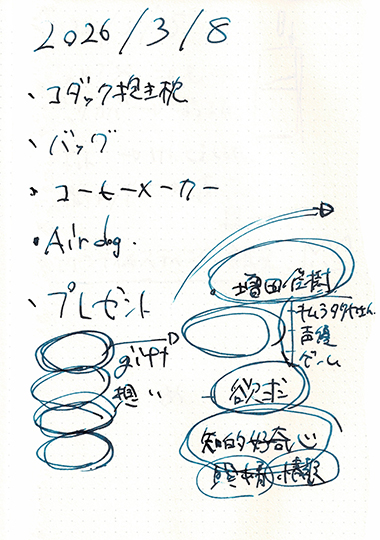 2026/3/8
、コダック抱き枕
、バッグ
、コーヒーメーカー
・Airdog.
、プレゼント
gift
想い
・増田俊樹
キムラタクヤさん
声優
ゲーム
欲求
知的好奇心
感情・情報